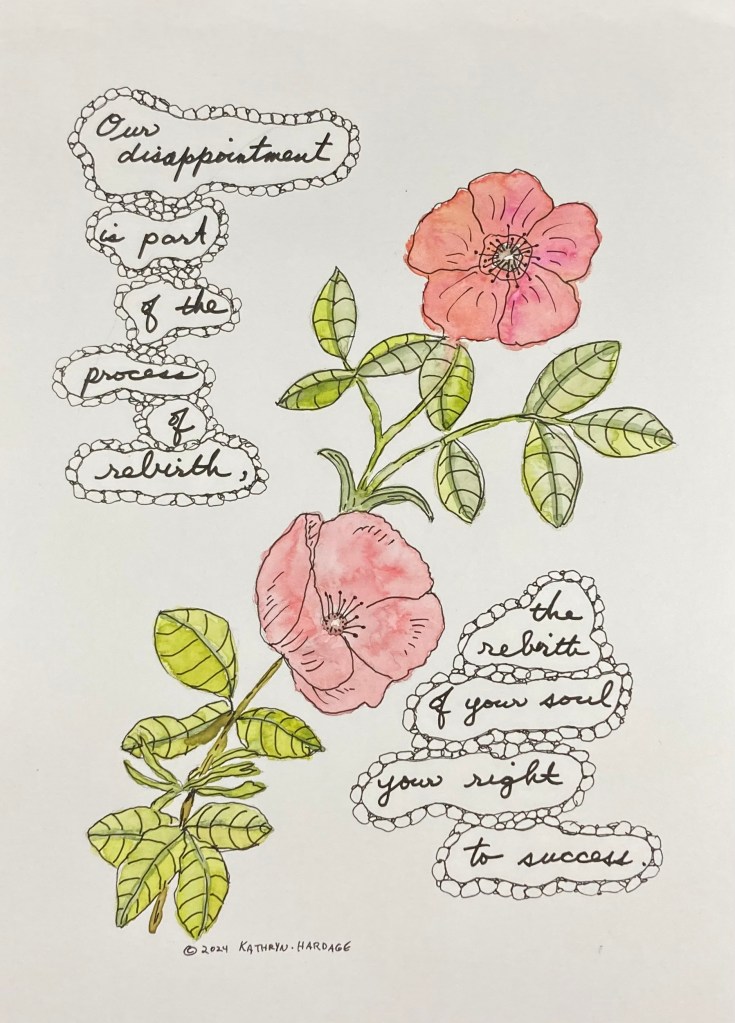 Our
disappointment
is part
of the
process
of
rebirth,
the
rebirth
of your soul
your right
to success.
© 2024 KATHRYN·HARDAGE